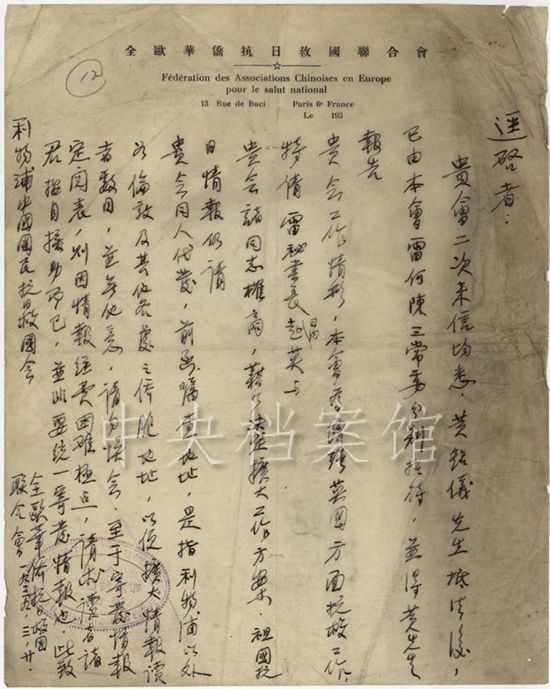 全歐華僑抗日救國聯合會
Fédération des Associations Chinoises en Europe
pour le salut national
13 Rue de Buci Paris 6e France
Le 193
12
逕啓者：
貴會二次來信均悉，黃銘儀先生抵法後，
已由本會雷何陳三常委分別招待，並得黃先生
報告
貴會工作情形，本會為增強英國方面抗救工作，
特請雷秘書長赴英與
貴會諸同志權商，藉以決定擴大工作方案，祖國抗
日情報仍請
貴會同人代發，前函囑查地址，是指利物浦以外
如倫敦及其他各處之僑胞地址，以便擴大情報讀
者數目，並無他意，請勿誤會。至于寄發情報
定閱表，則因情報經費困難極点，請求讀者諸
君按月援助而已，並非要統一寄發情報也。此致
利物浦中國國民抗日救國會
全歐華僑抗日救國
聯合會 一九三九.三.廿.
中央档案馆